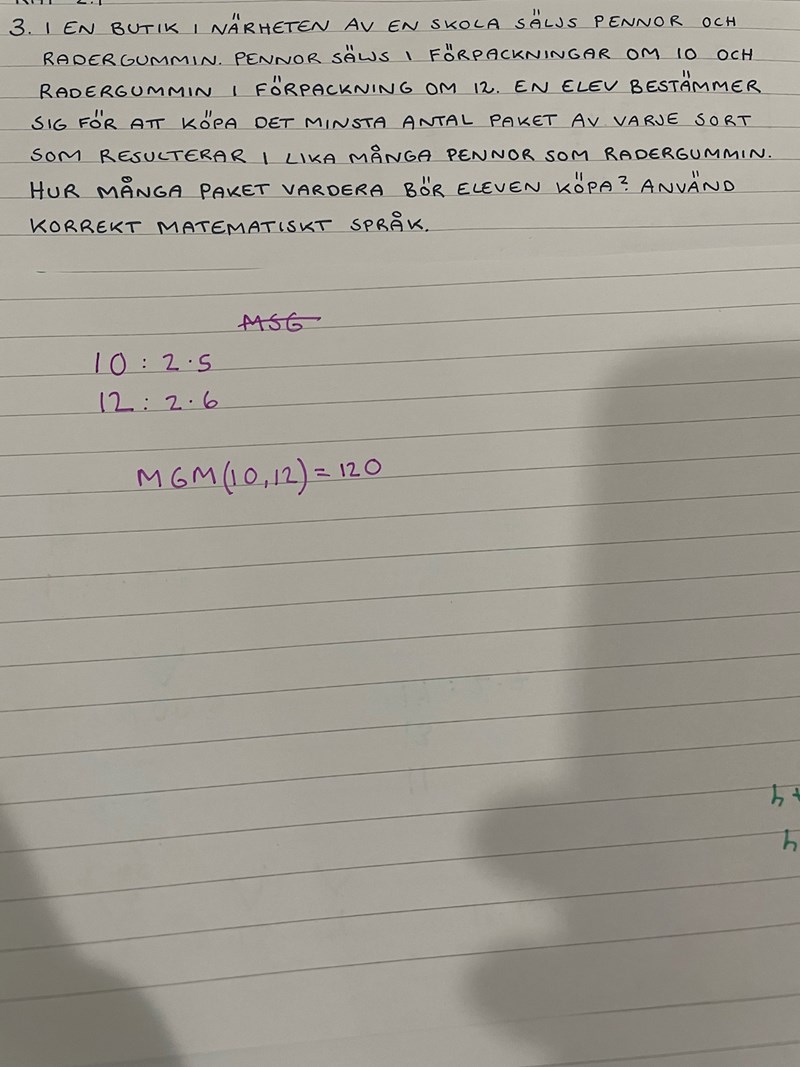 3. I EN BUTIK I NÄRHETEN AV EN SKOLA SÄLJS PENNOR OCH
RADERGUMMIN. PENNOR SÄLJS I FÖRPACKNINGAR OM 10 OCH
RADERGUMMIN I FÖRPACKNING OM 12. EN ELEV BESTÄMMER
SIG FÖR ATT KÖPA DET MINSTA ANTAL PAKET AV VARJE SORT
SOM RESULTERAR I LIKA MÅNGA PENNOR SOM RADERGUMMIN.
HUR MÅNGA PAKET VARDERA BÖR ELEVEN KÖPA? ANVÄND
KORREKT MATEMATISKT SPRÅK.
MSG
10 : 2·5
12 : 2·6
MGM(10,12) = 120